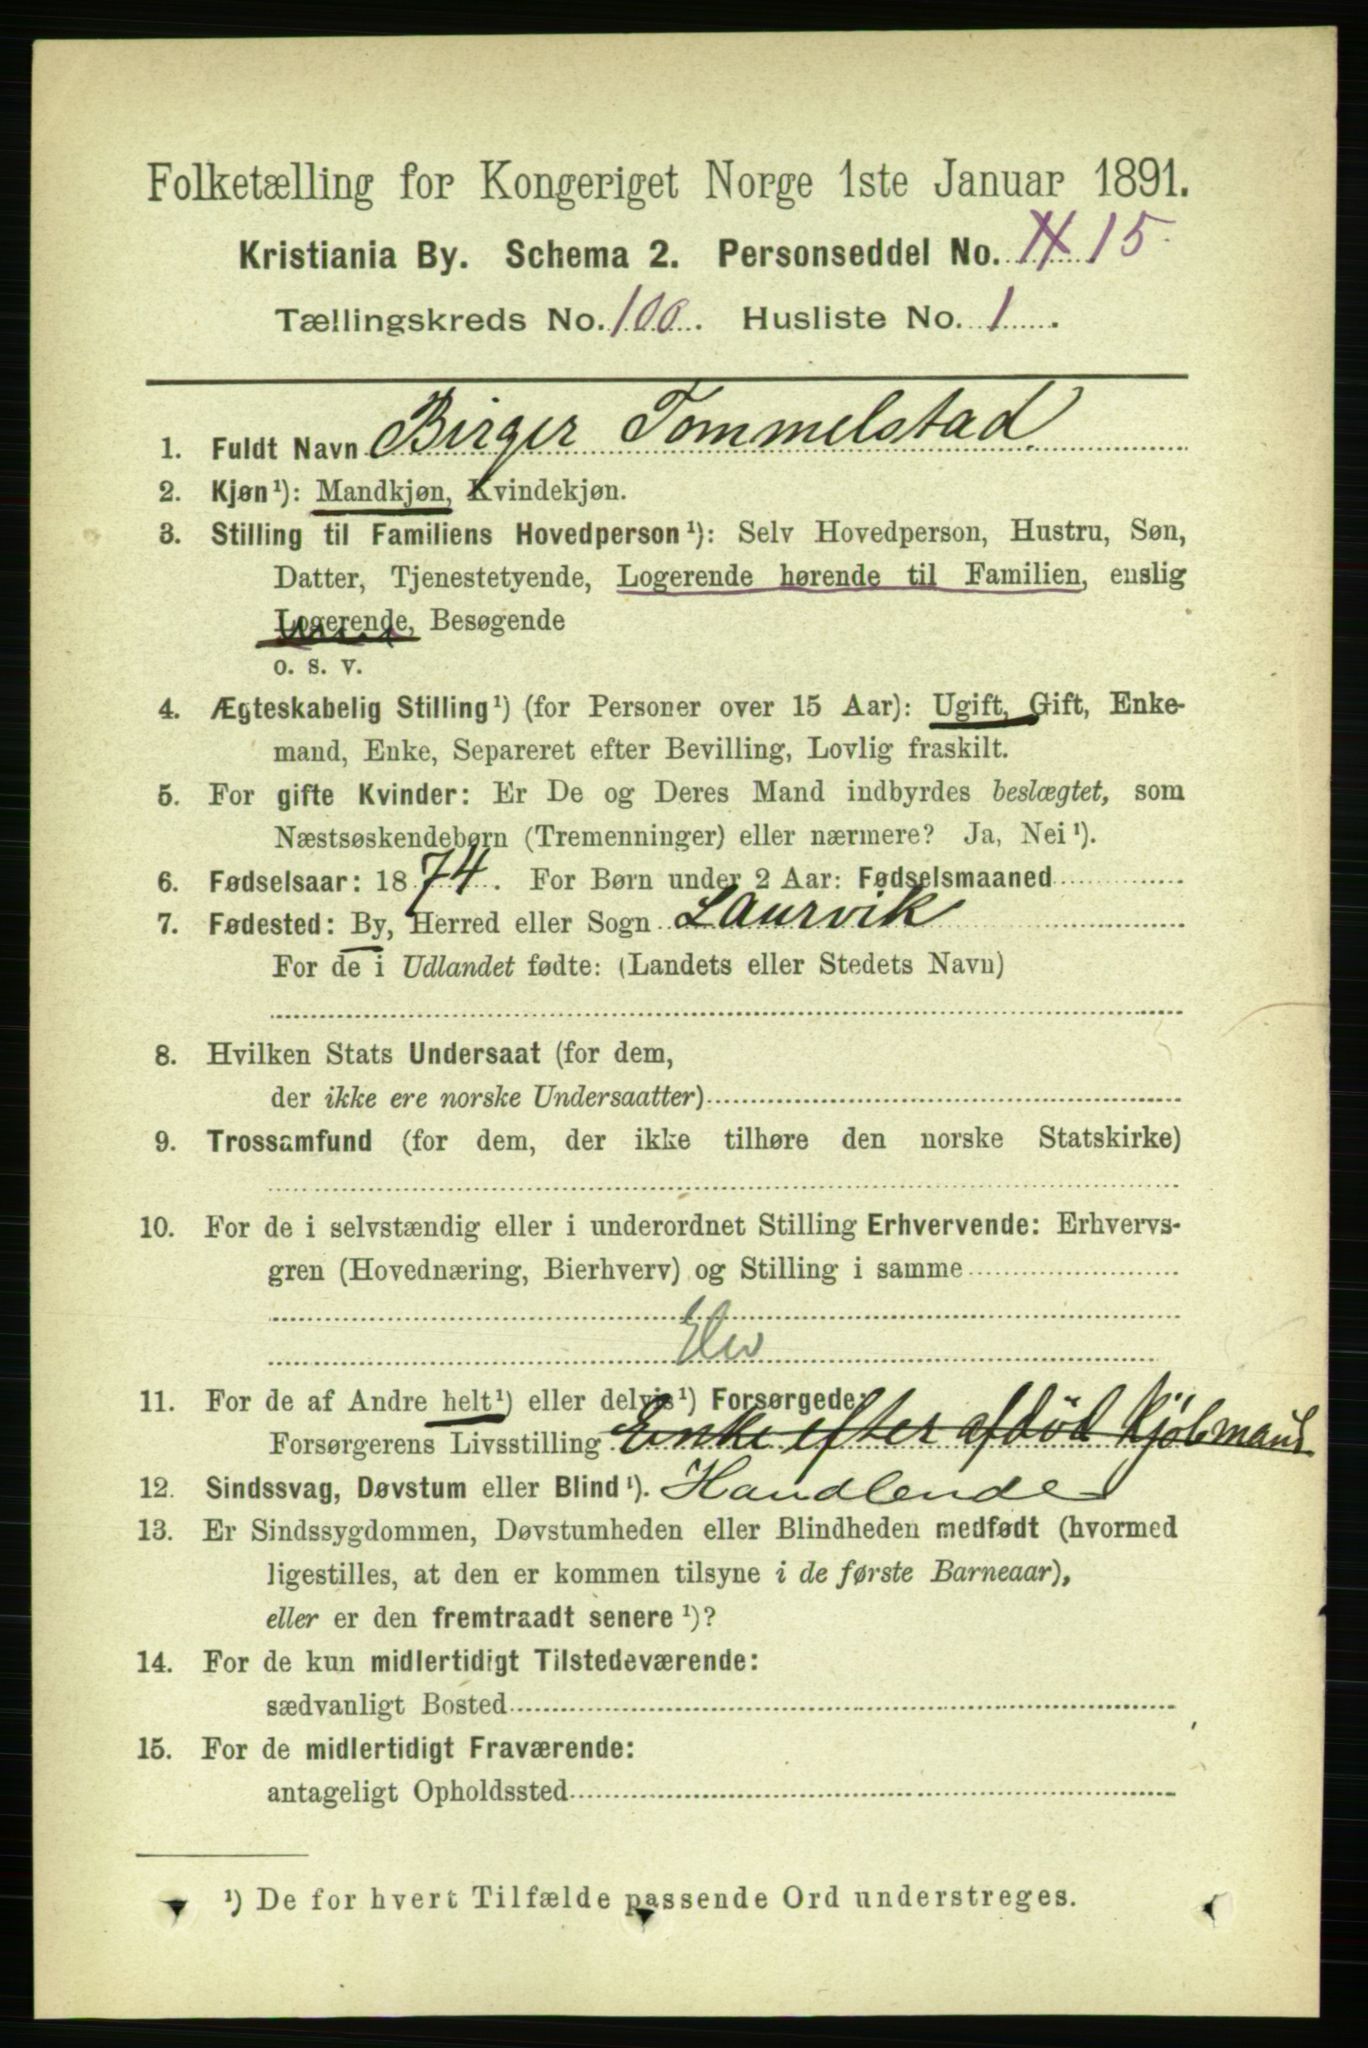 Folketælling for Kongeriget Norge 1ste Januar 1891.
Kristiania By. Schema 2. Personseddel No. 15
Tællingskreds No. 100. Husliste No. 1
1. Fuldt Navn Birger Tommelstad
2. Kjøn¹): Mandkjøn, Kvindekjøn.
3. Stilling til Familiens Hovedperson¹): Selv Hovedperson, Hustru, Søn,
Datter, Tjenestetyende, Logerende hørende til Familien, enslig
Logerende, Besøgende
o. s. v.
4. Ægteskabelig Stilling¹) (for Personer over 15 Aar): Ugift, Gift, Enke-
mand, Enke, Separeret efter Bevilling, Lovlig fraskilt.
5. For gifte Kvinder: Er De og Deres Mand indbyrdes beslægtet, som
Næstsøskendebørn (Tremenninger) eller nærmere? Ja, Nei¹).
6. Fødselsaar: 1874. For Børn under 2 Aar: Fødselsmaaned
7. Fødested: By, Herred eller Sogn Laurvik
For de i Udlandet fødte: (Landets eller Stedets Navn)
8. Hvilken Stats Undersaat (for dem,
der ikke ere norske Undersaatter)
9. Trossamfund (for dem, der ikke tilhøre den norske Statskirke)
10. For de i selvstændig eller i underordnet Stilling Erhvervende: Erhvervs-
gren (Hovednæring, Bierhverv) og Stilling i samme
Elev
11. For de af Andre helt¹) eller delvis¹) Forsørgede:
Forsørgerens Livsstilling Enke efter afdöd Kjöbmand
12. Sindssvag, Døvstum eller Blind¹). Handlende
13. Er Sindssygdommen, Døvstumheden eller Blindheden medfødt (hvormed
ligestilles, at den er kommen tilsyne i de første Barneaar),
eller er den fremtraadt senere¹)?
14. For de kun midlertidigt Tilstedeværende:
sædvanligt Bosted
15. For de midlertidigt Fraværende:
antageligt Opholdssted
¹) De for hvert Tilfælde passende Ord understreges.